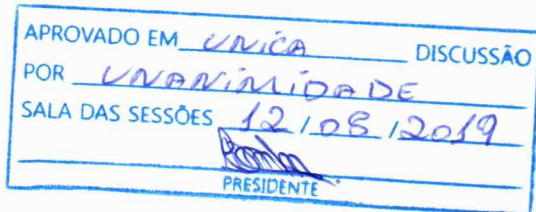 APROVADO EM UNICA DISCUSSÃO
POR UNANIMIDADE
SALA DAS SESSÕES 12/08/2019
PRESIDENTE